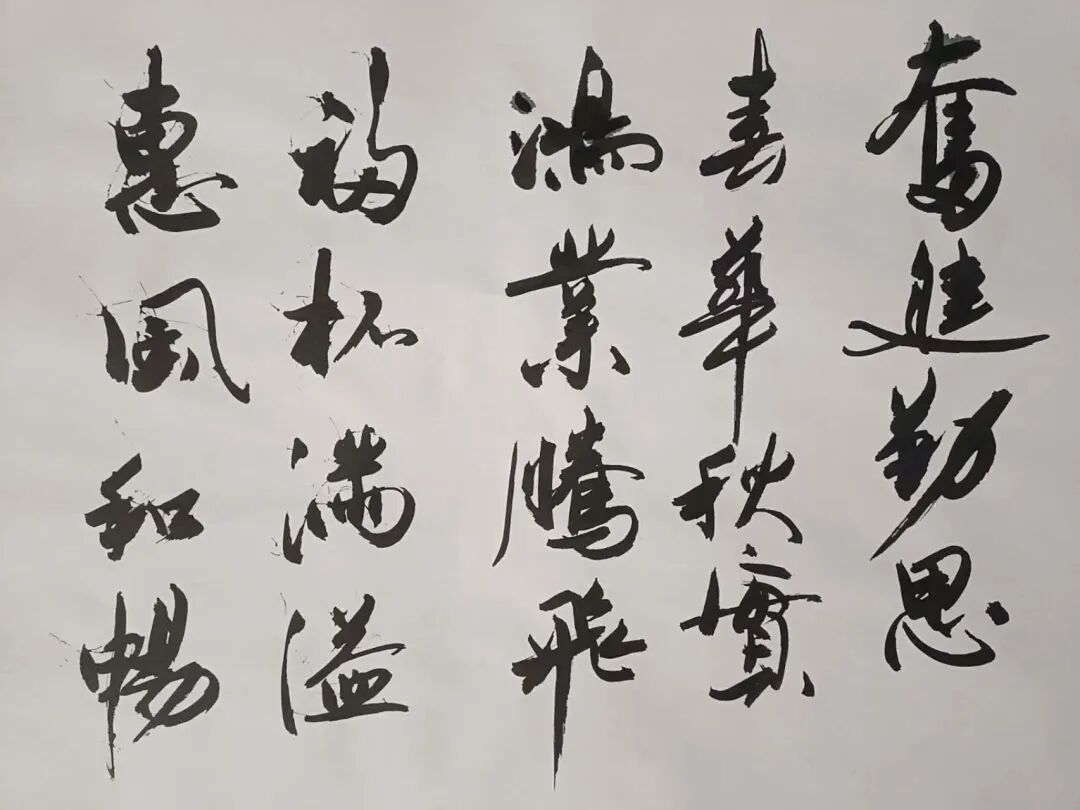 奮進勤思
春華秋實
鴻業騰飛
福杯满溢
惠風和暢